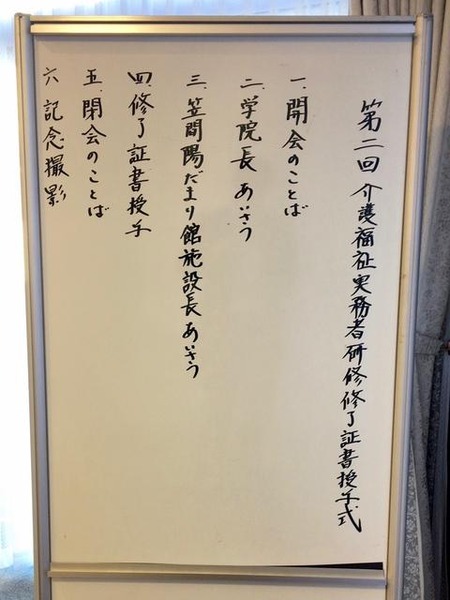 第二回 介護福祉実務者研修修了証書授与式
一、開会のことば
二、学院長 あいさつ
三、笠間陽だまり館施設長 あいさつ
四、修了証書授与
五、閉会のことば
六、記念撮影